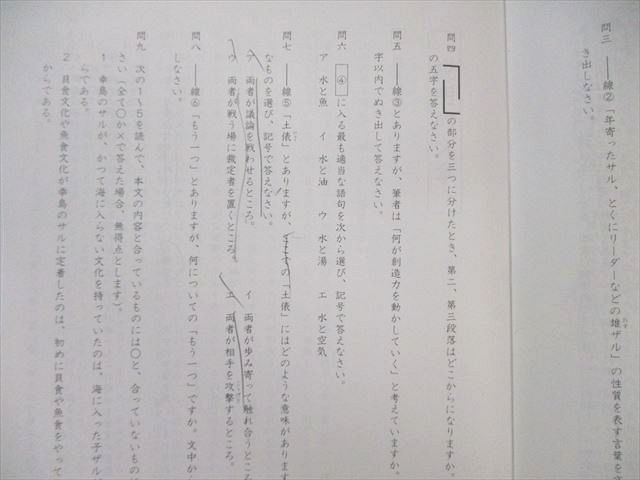 問三 ――線②「年寄ったサル、とくにリーダーなどの雄ザル」の性質を表す言葉を文
おす
き出しなさい。
問四 の部分を三つに分けたとき、第二、第三段落はどこからになりますか。
の五字を答えなさい。
問五 ――線③とありますが、筆者は「何が創造力を動かしていく」と考えていますか。
字以内でぬき出して答えなさい。
問六 ④に入る最も適当な語句を次から選び、記号で答えなさい。
ア 水と魚 イ 水と油 ウ 水と湯 エ 水と空気
問七 ――線⑤「土俵」とありますが、ここでの「土俵」にはどのような意味があります
なものを選び、記号で答えなさい。
ア 両者が議論を戦わせるところ。 イ 両者が歩み寄って触れ合うところ
ウ 両者が戦う場に裁定者を置くところ。 エ 両者が相手を攻撃するところ。
問八 ――線⑥「もう一つ」とありますが、何についての「もう一つ」ですか。文中か
しなさい。
問九 次の1～5を読んで、本文の内容と合っているものには○と、合っていないものに
さい（全て○か×で答えた場合、無得点とします）。
1 幸島のサルが、かつて海に入らない文化を持っていたのは、海に入った子ザルが
らである。
2 貝食文化や魚食文化が幸島のサルに定着したのは、初めに貝食や魚食をやって
からである。